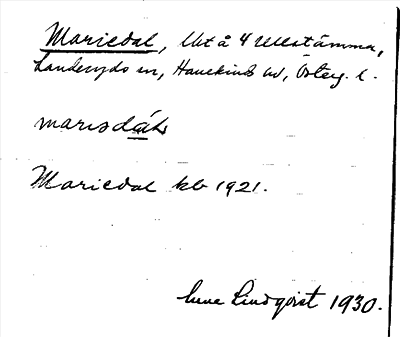 Mariedal, Utå 4 Ullstämma,
Landeryds sn, Hanekinds hd, Österg. l.
marɩsdál
Mariedal kb 1921.
Sune Lindqvist 1930.